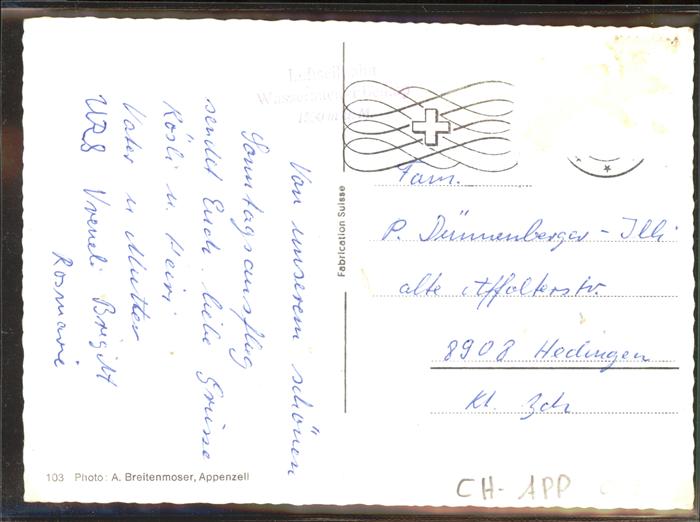 Von unserem schönen
Sonntagsausflug
sendet Euch liebe Grüsse
Rösli u. Heiri
Vater u Mutter
Vreneli Brigitt
Rosmarie
Fabrication Suisse
Fam.
P. Dünnenberger - Illi
alte Affolterstr.
8908 Hedingen
Kt. Zch
103 Photo: A. Breitenmoser, Appenzell
CH-APP